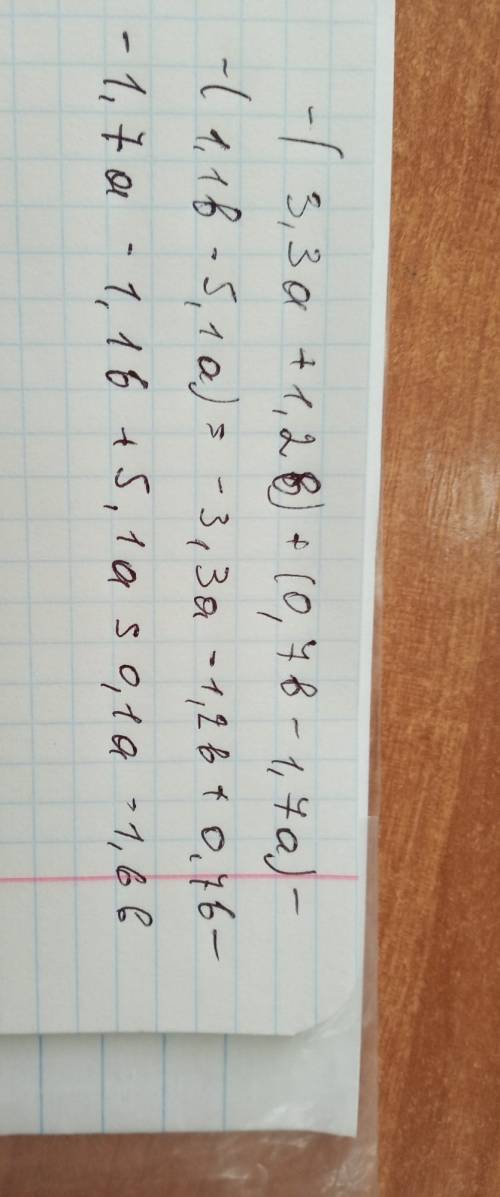 -(3,3a + 1,2в) + (0,7в - 1,7a) -
-(1,1в - 5,1a) = -3,3a - 1,2в + 0,7в -
-1,7a - 1,1в + 5,1a = 0,1a - 1,6в